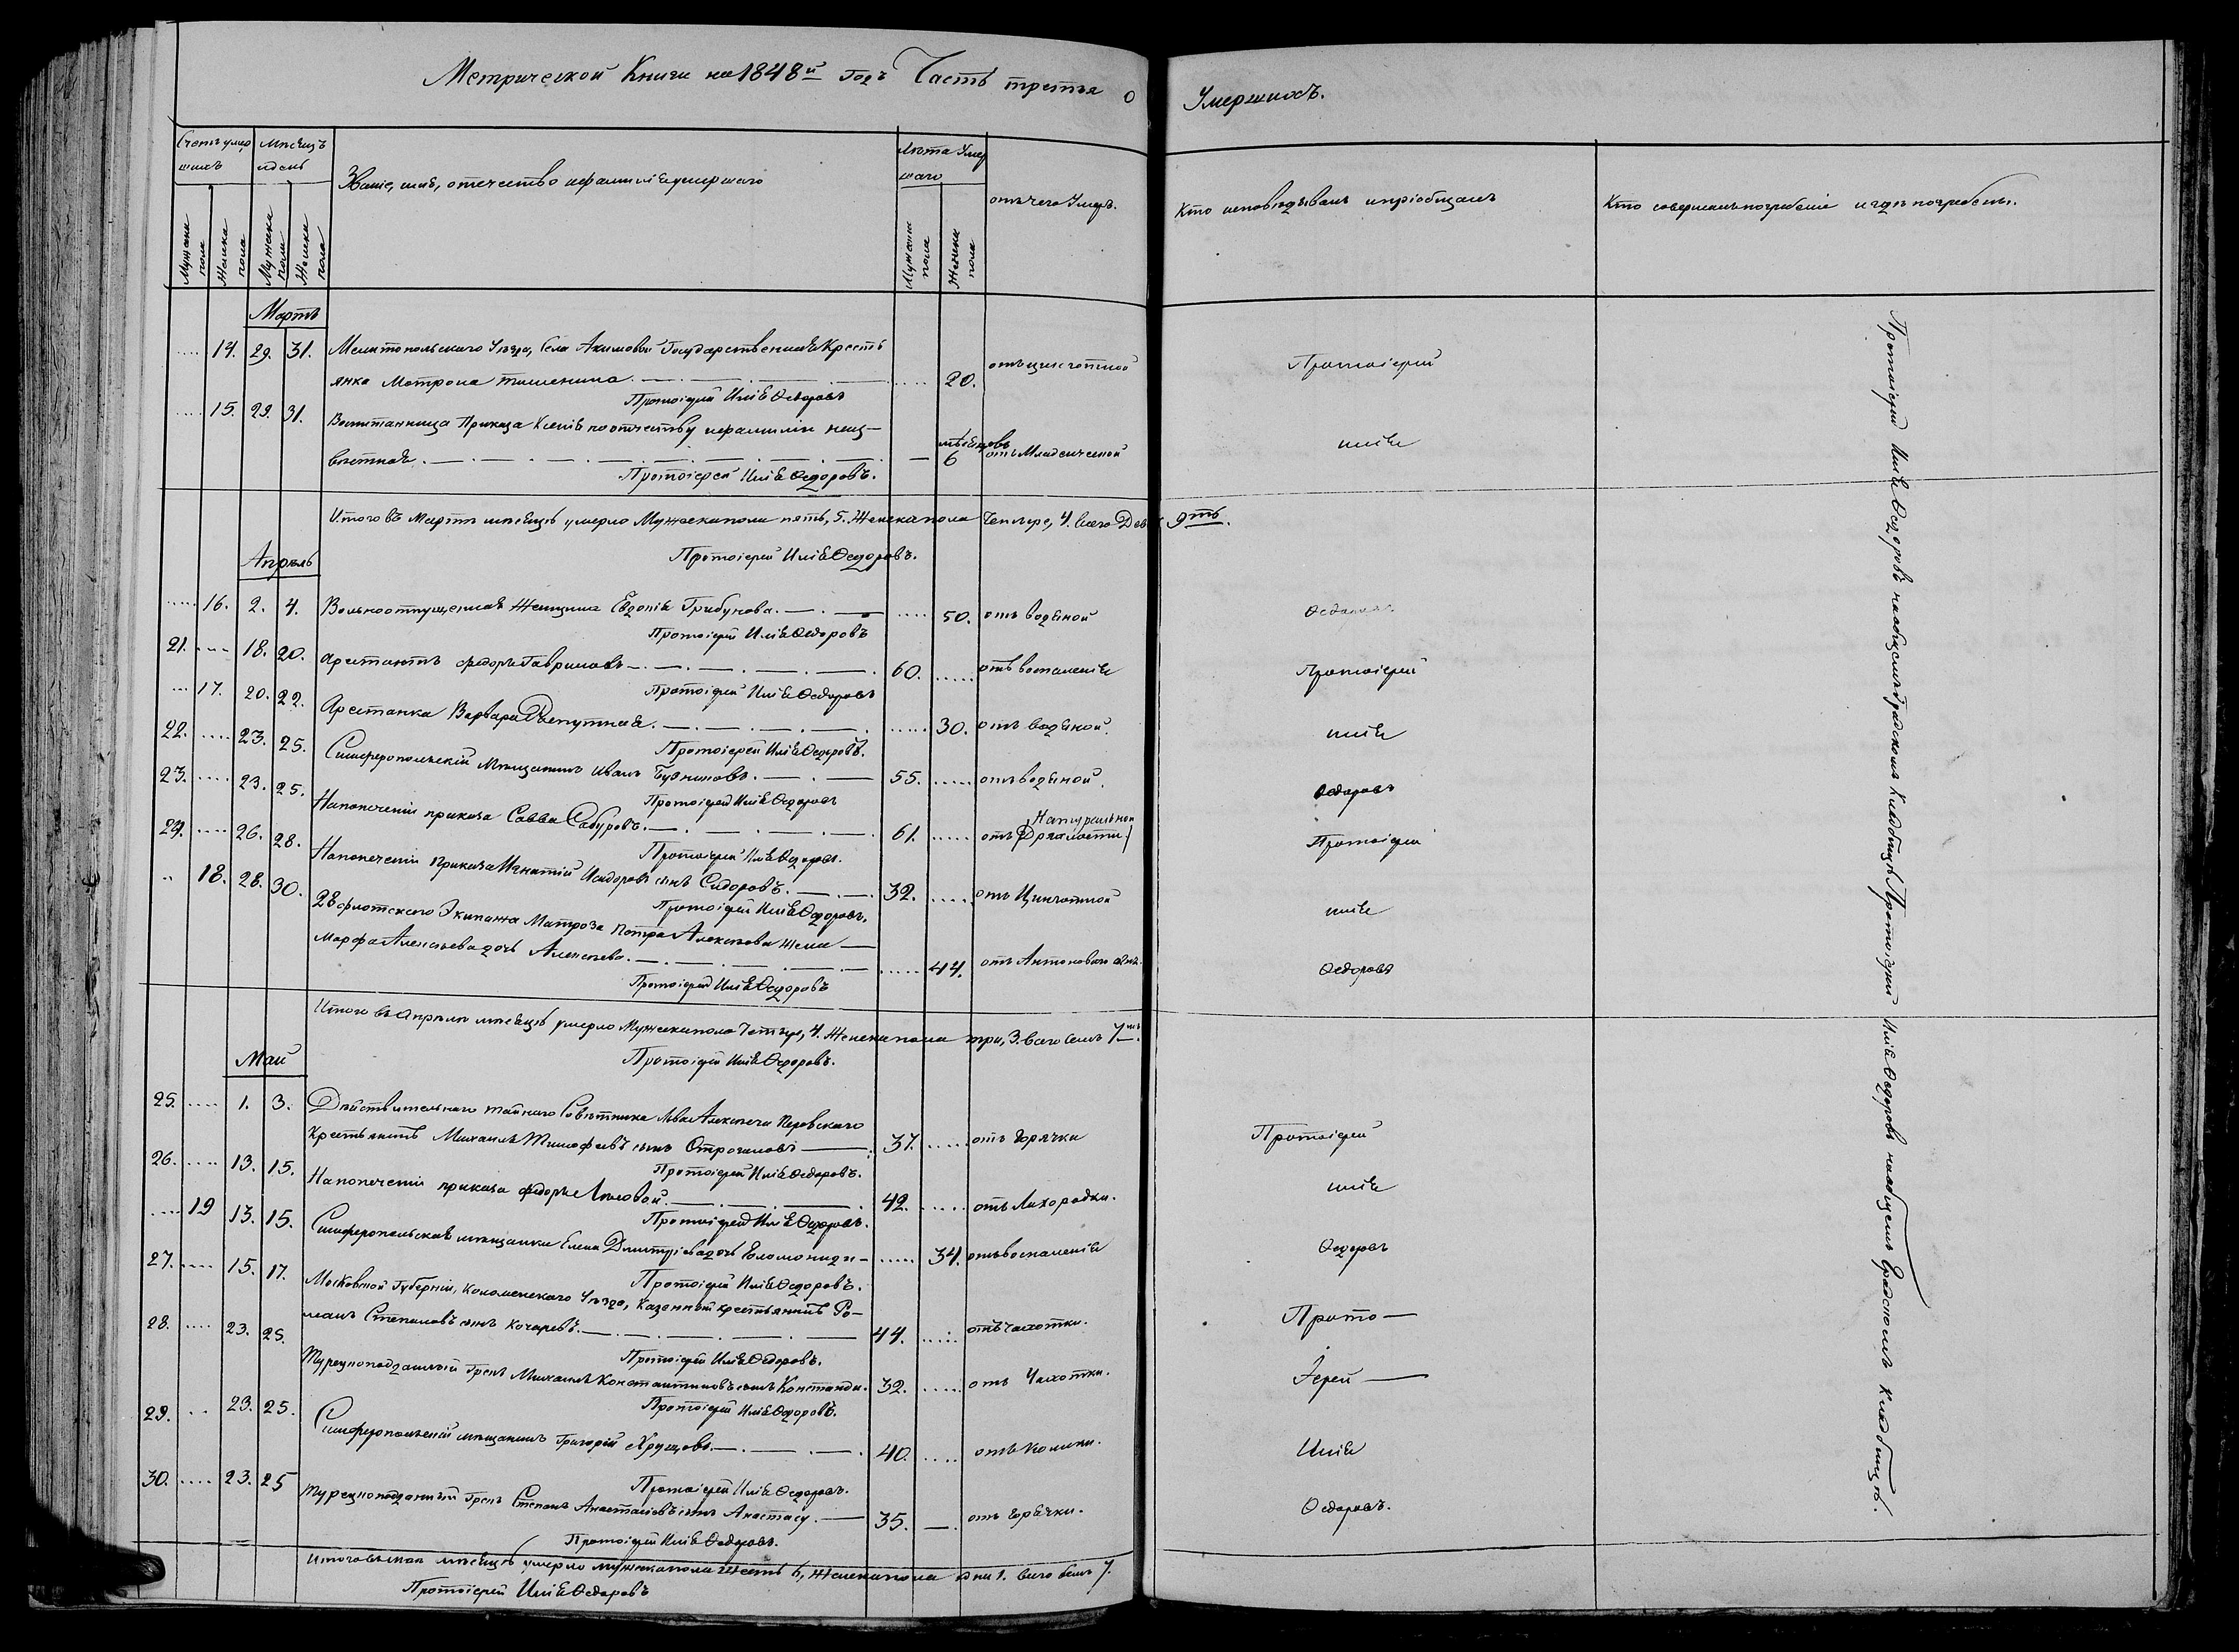 Метрической Книги на 1848й годъ Часть третья о Умершихъ.
Счетъ умершихъ
Мѣсяцъ и день
Званіе, имя, отечество и фамилія умершаго
Лѣта Умершаго
отъ чего Умеръ.
Кто исповѣдывалъ и пріобщалъ
Кто совершалъ погребеніе и гдѣ погребены.
Мужеска пола
Женска пола
Мужеска пола
Женска пола
Мужеска пола
Женска пола
Мартъ
.... 14. 29. 31. Мелитопольскаго Уѣзда, Села Акимовки Государственная Кресть
янка Матрона Тишенина. .... 20. отъ цынготной Протоіерей
Протоіерей Илія Ѳедоровъ
.... 15. 29. 31. Воспитанница Приказа Ксенія по отчеству и фамиліи неиз-
вѣстная. — мѣсяцовъ 6 отъ Младенческой Илія
Протоіерей Илія Ѳедоровъ.
Итого въ Мартѣ мѣсяцѣ умерло Мужеска пола пять, 5. Женска пола Четыре, 4. всего Дев 9ть.
Протоіерей Илія Ѳедоровъ.
Апрѣль
..... 16. 2. 4. Вольноотпущенная Женщина Евдокія Грибунова. .... 50. отъ водяной Ѳедоровъ
Протоіерей Илія Ѳедоровъ
21. .... 18. 20. Арестантъ Федоръ Гавриловъ 60. ..... отъ воспаленія Протоіерей
Протоіерей Илія Ѳедоровъ
... 17. 20. 22. Арестанка Варвара Депутная. ..... 30. отъ водяной. Илія
Протоіерей Илія Ѳедоровъ.
22. .... 23. 25. Симферопольскій Мѣщанинъ Иванъ 55. ..... отъ водяной. Ѳедоровъ
Протоіерей Илія Ѳедоровъ
23. .... 23. 25. На попеченіи приказа Савва Сабуровъ. 61. ..... отъ Натуральной Дряхлости. Протоіерей
Протоіерей Илія Ѳедоровъ.
24. .... 26. 28. На попеченіи приказа Игнатій Исидоровъ сынъ Сидоровъ. 32. ..... отъ Цынготной Илія
Протоіерей Илія Ѳедоровъ.
.. 18. 28. 30. 28 флотскаго Экипажа Матроза Петра Алексѣева жена —
Марфа Алексѣева дочь Алексѣева. ..... 44. отъ Антонова огня. Ѳедоровъ
Протоіерей Илія Ѳедоровъ
Итого въ Апрѣлѣ мѣсяцѣ умерло Мужеска пола Четыре, 4. Женска пола три, 3. всего семь 7мь.
Протоіерей Илія Ѳедоровъ.
Май
25. .... 1. 3. Дѣйствительнаго тайнаго Совѣтника Льва Алексѣича Перовскаго
Крестьянинъ Михаилъ Тимофеевъ сынъ 37. ..... отъ Горячки Протоіерей
Протоіерей Илія Ѳедоровъ.
26. .... 13. 15. На попеченіи приказа Федоръ 42. ..... отъ Лихорадки. Илія
Протоіерей Илія Ѳедоровъ.
.... 19 13. 15. Симферопольская мѣщанка Елена Дмитріева дочь ..... 34. отъ воспаленія Ѳедоровъ
Протоіерей Илія Ѳедоровъ.
27. .... 15. 17. Московской Губерніи, Коломенскаго Уѣзда, Казенный крестьянинъ Ро-
манъ Степановъ сынъ Кочаревъ. 44. ..... отъ чахотки. Прото —
Протоіерей Илія Ѳедоровъ.
28. .... 23. 25. Турецкоподданный Грекъ Михаилъ Константиновъ сынъ Констанди. 32. ..... отъ Чахотки. Іерей —
Протоіерей Илія Ѳедоровъ.
29. .. 23. 25. Симферопольскій мѣщанинъ Григорій Хрущовъ. 40. .... отъ Колики. Илія
Протоіерей Илія Ѳедоровъ.
30. .... 23. 25 Турецкоподданный Грекъ Степанъ Анастасіевъ сынъ Анастасу. 35. —. отъ Горячки. Ѳедоровъ.
Протоіерей Илія Ѳедоровъ.
Итого въ маѣ мѣсяцѣ умерло мужеска пола Шесть 6, женска пола одна 1. всего семь 7.
Протоіерей Илія Ѳедоровъ
Протоіерей Илія Ѳедоровъ на общемъ градскомъ Кладбищѣ Протоіерей Илія Ѳедоровъ на общемъ Градскомъ Кладбищѣ.